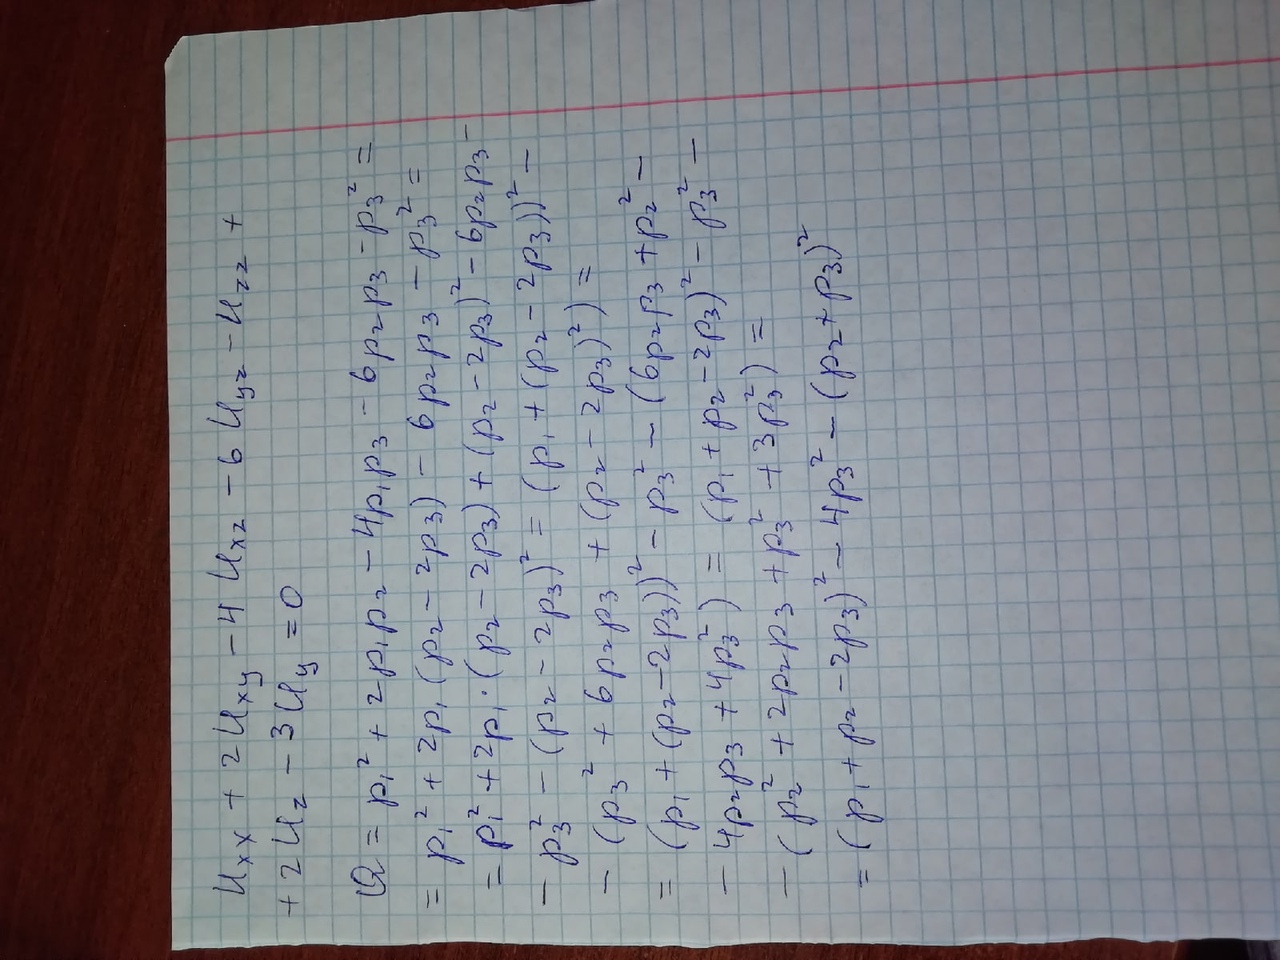 Uxx + 2Uxy - 4Uxz - 6Uyz - Uzz +
+ 2Uz - 3Uy = 0
Q = p₁² + 2p₁p₂ - 4p₁p₃ - 6p₂p₃ - p₃² =
= p₁² + 2p₁(p₂ - 2p₃) - 6p₂p₃ - p₃² =
= p₁² + 2p₁·(p₂ - 2p₃) + (p₂ - 2p₃)² - 6p₂p₃ -
- p₃² - (p₂ - 2p₃)² = (p₁ + (p₂ - 2p₃))² -
- (p₃² + 6p₂p₃ + (p₂ - 2p₃)²) =
= (p₁ + (p₂ - 2p₃))² - p₃² - (6p₂p₃ + p₂² -
- 4p₂p₃ + 4p₃²) = (p₁ + p₂ - 2p₃)² - p₃² -
- (p₂² + 2p₂p₃ + p₃² + 3p₃²) =
= (p₁ + p₂ - 2p₃)² - 4p₃² - (p₂ + p₃)²